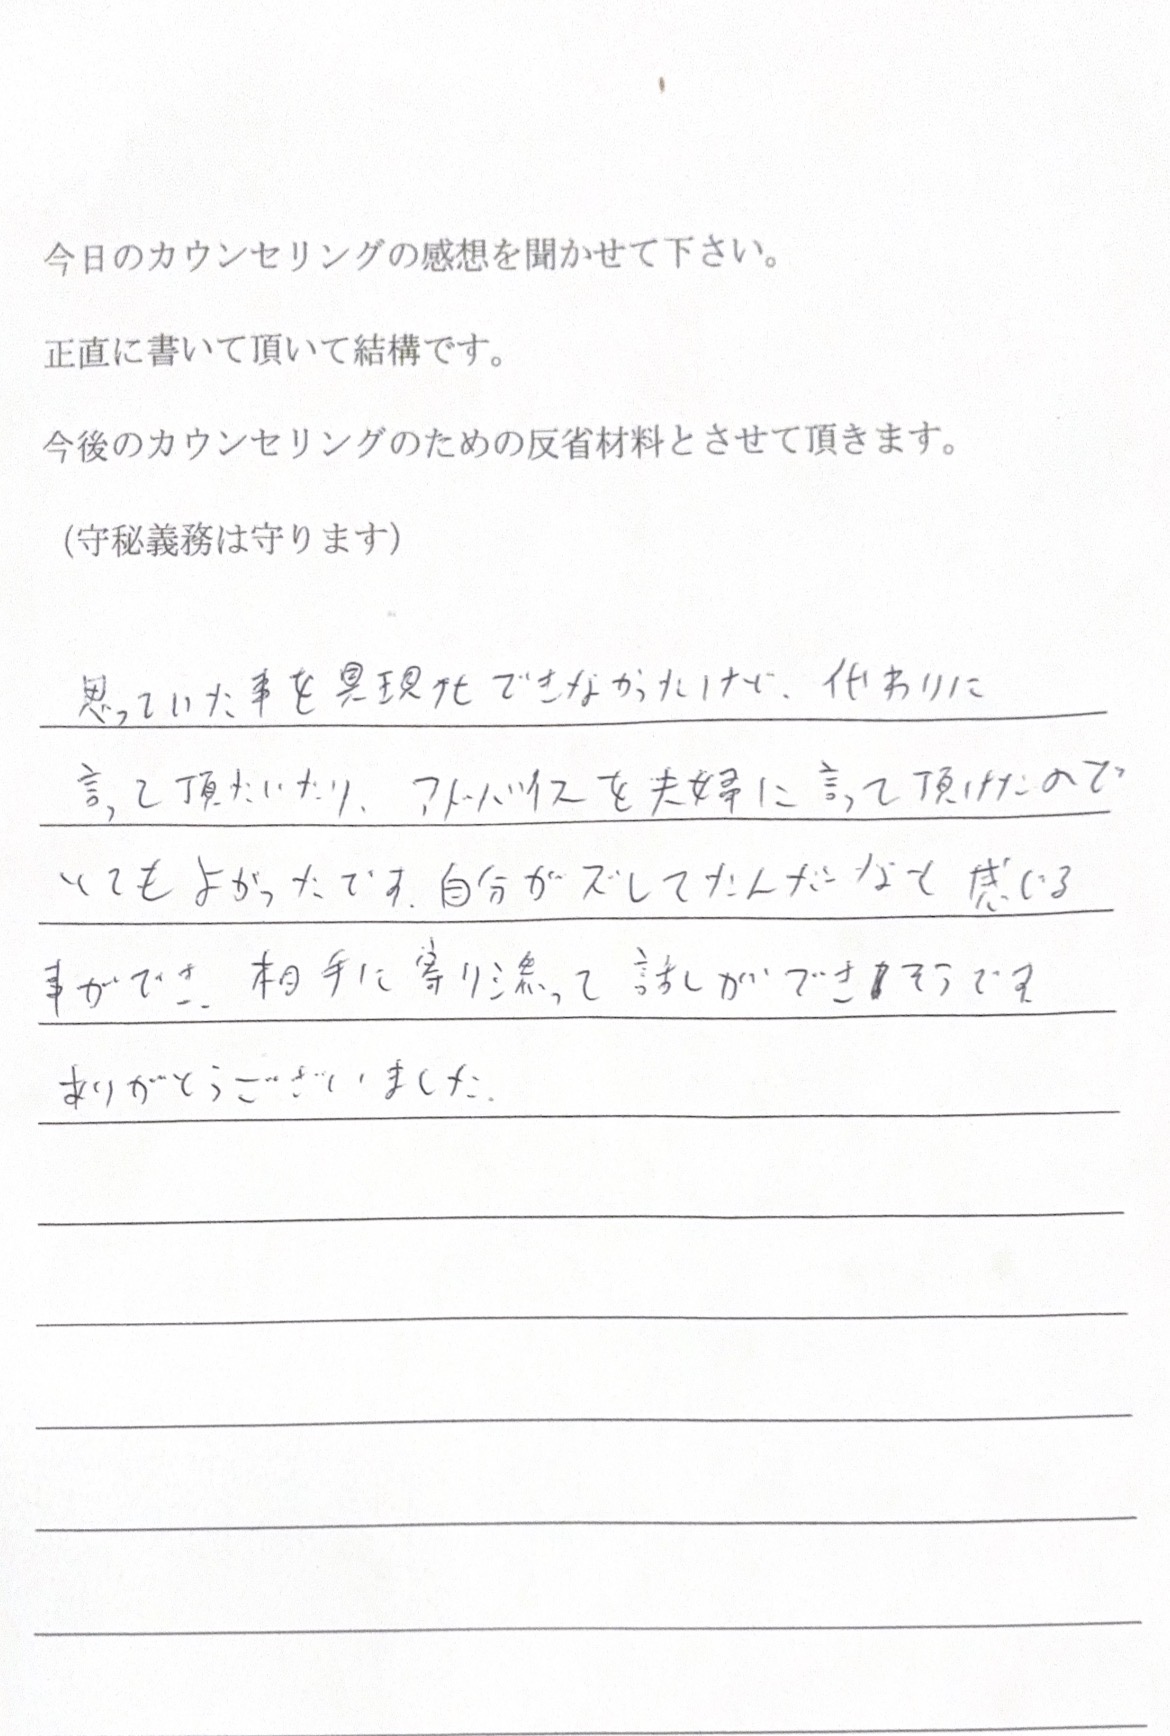 今日のカウンセリングの感想を聞かせて下さい。
正直に書いて頂いて結構です。
今後のカウンセリングのための反省材料とさせて頂きます。
（守秘義務は守ります）
思っていた事を具現化できなかったけど、代わりに
言って頂たいたり、アドバイスを夫婦に言って頂けたので
とてもよかったです。自分がズレてたんだなと感じる
事ができ、相手に寄り添って話しができそうです
ありがとうございました。